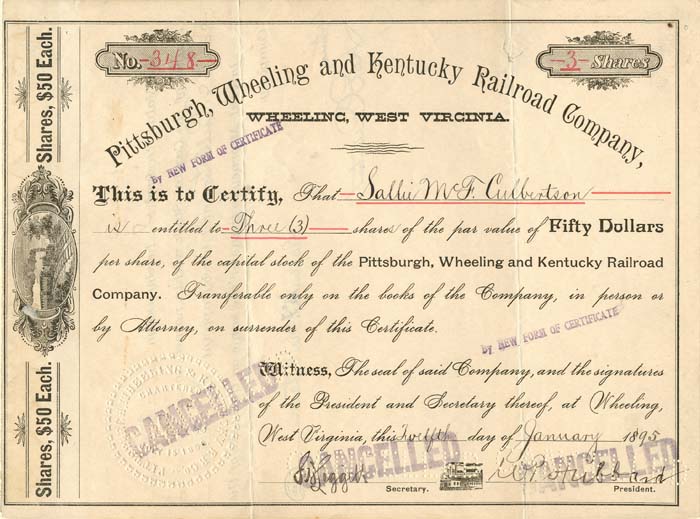 No. 348
3 Shares
Pittsburgh, Wheeling and Kentucky Railroad Company,
WHEELING, WEST VIRGINIA.
By NEW FORM OF CERTIFICATE
This is to Certify, That Sallie McF. Culbertson
is entitled to Three (3) shares of the par value of Fifty Dollars
per share, of the capital stock of the Pittsburgh, Wheeling and Kentucky Railroad
Company. Transferable only on the books of the Company, in person or
by Attorney, on surrender of this Certificate.
By NEW FORM OF CERTIFICATE
Witness, The seal of said Company, and the signatures
of the President and Secretary thereof, at Wheeling,
West Virginia, this twelfth day of January 1895
CANCELLED
CANCELLED
CANCELLED
Secretary.
President.
Shares, $50 Each.
Shares, $50 Each.